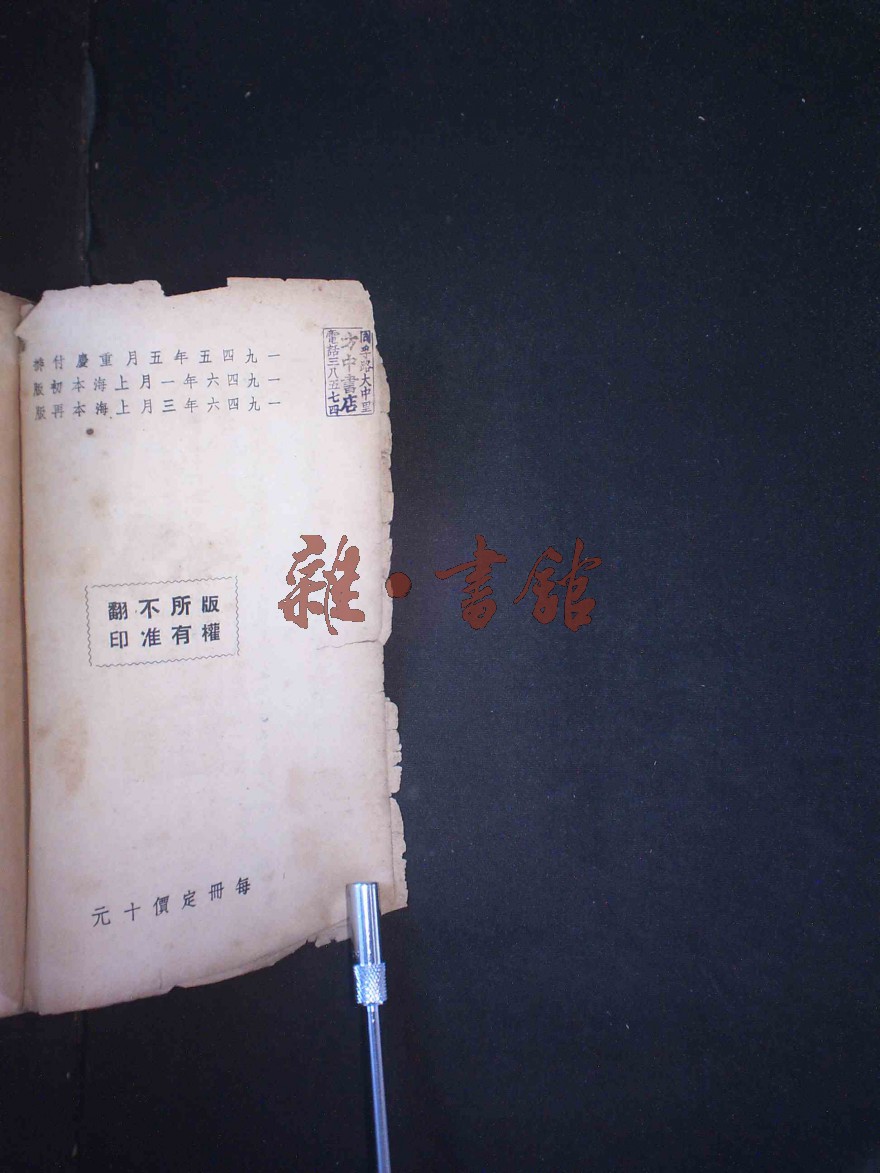 一九四五年五月重慶付排
一九四六年一月上海本初版
一九四六年三月上海本再版
路大中里
方中書店
電話三八五七四
版權所有
不准翻印
每冊定價十元
雜·書館